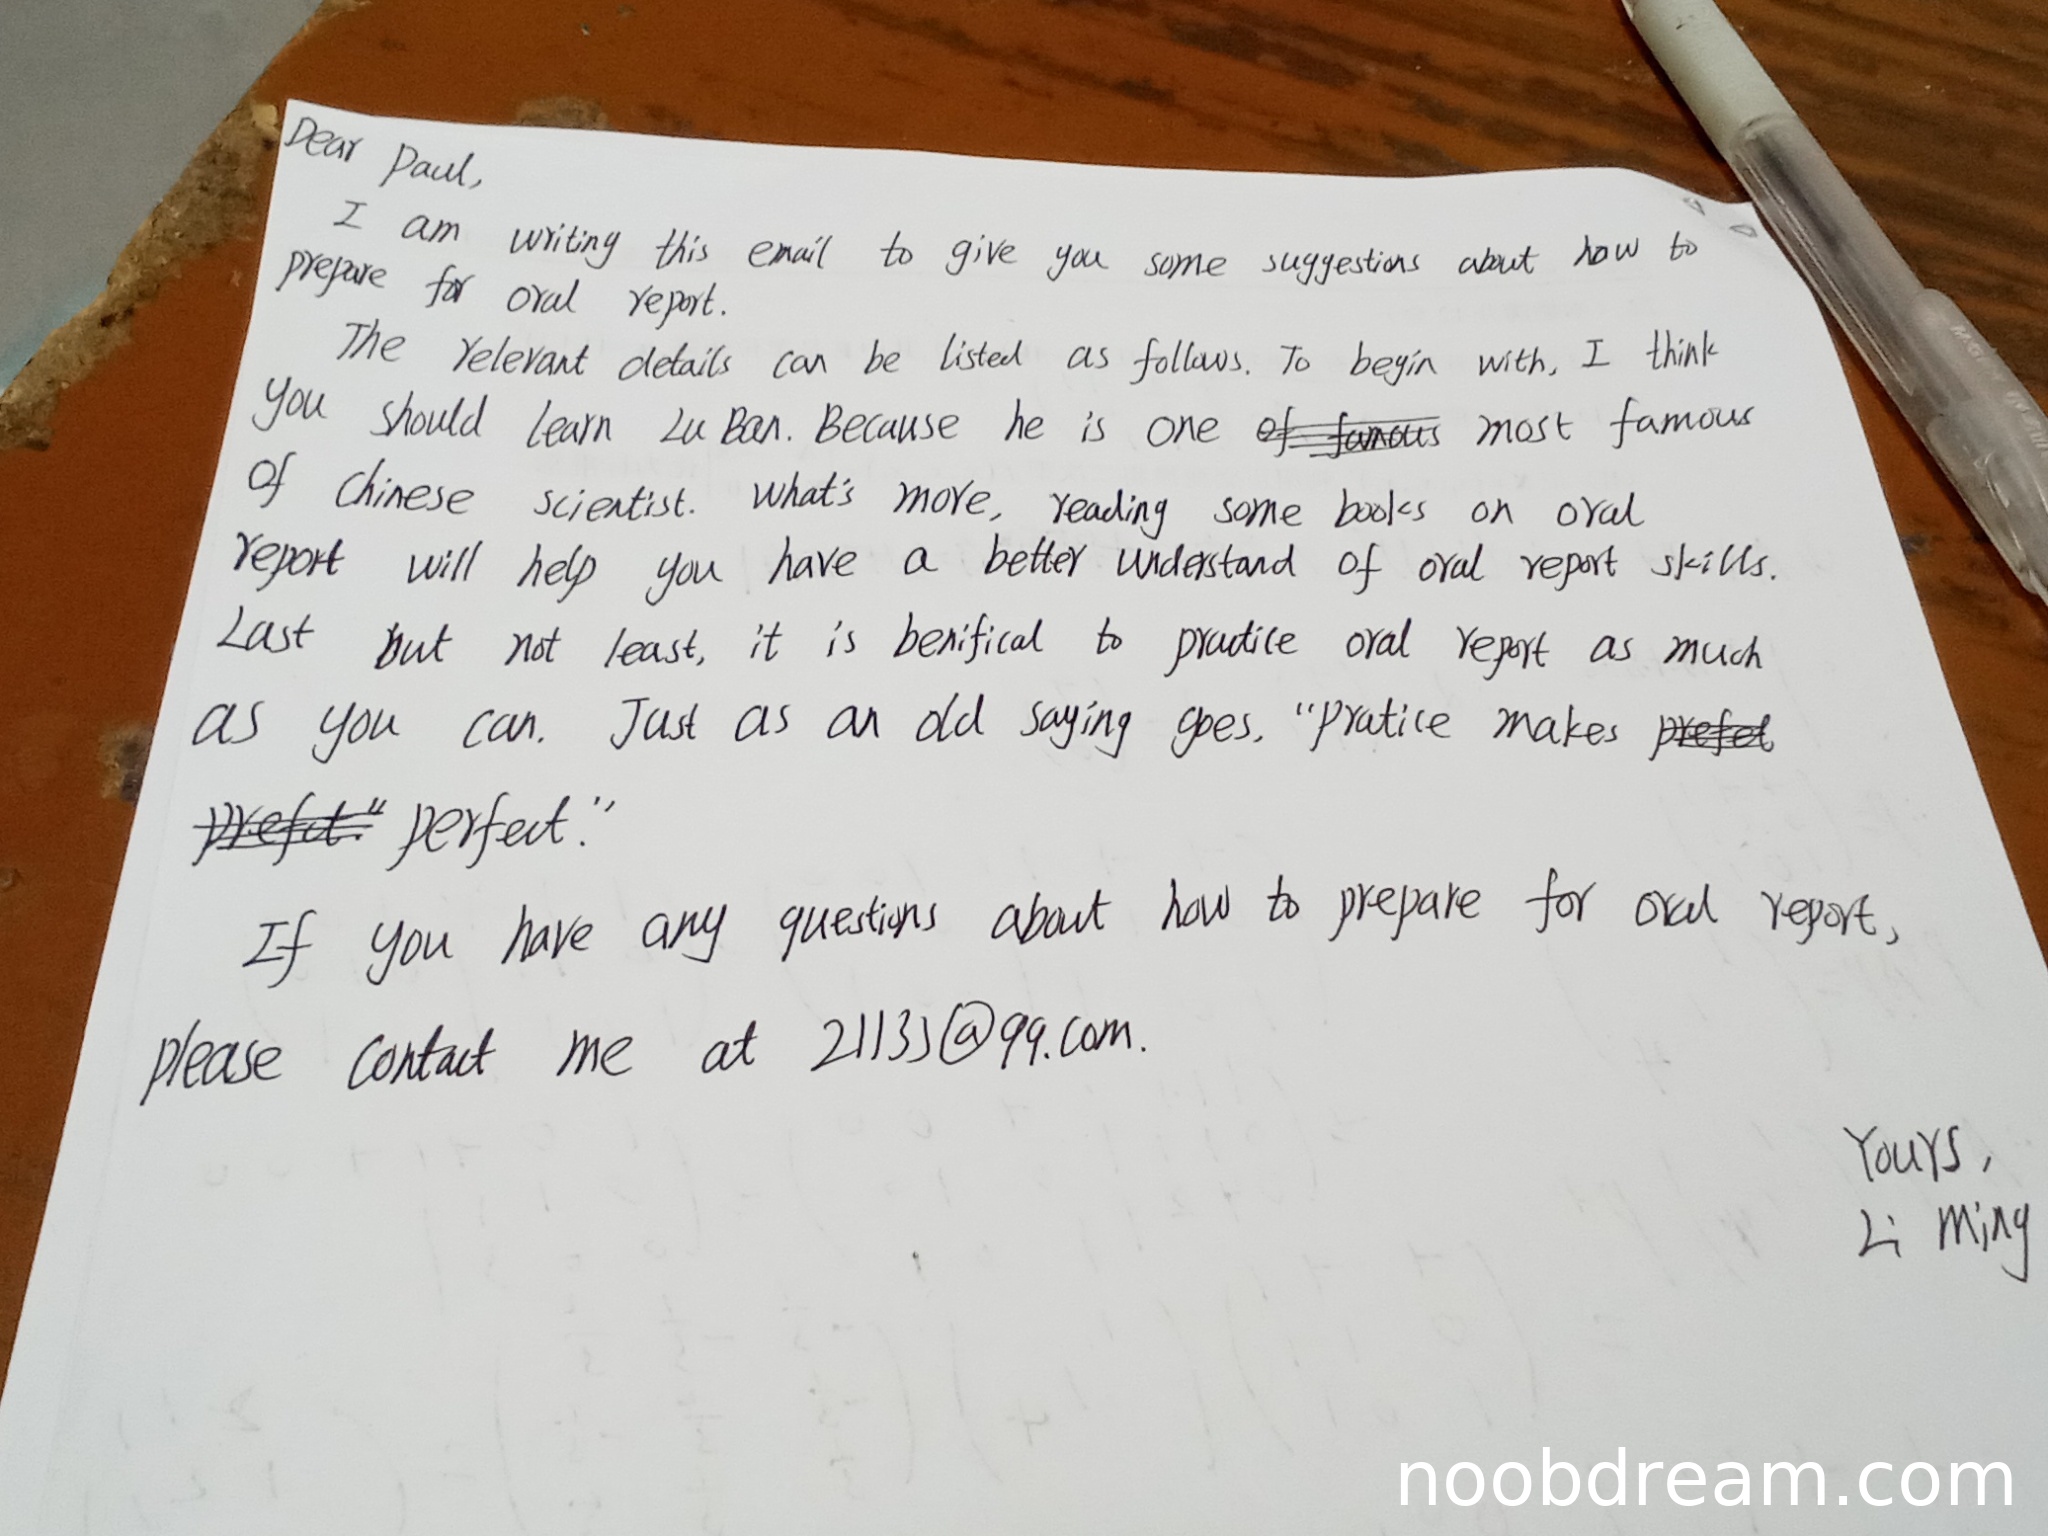 Dear Paul,
I am writing this email to give you some suggestions about how to
prepare for oral report.
The relevant details can be listed as follows. To begin with, I think
you should learn Lu Ban. Because he is one of famous most famous
of Chinese scientist. What's more, reading some books on oral
report will help you have a better understand of oral report skills.
Last but not least, it is benifical to practice oral report as much
as you can. Just as an old saying goes, "Pratice makes prefet
prefct." perfect."
If you have any questions about how to prepare for oral report,
please contact me at @qq.com.
Yours,
Li Ming
noobdream.com